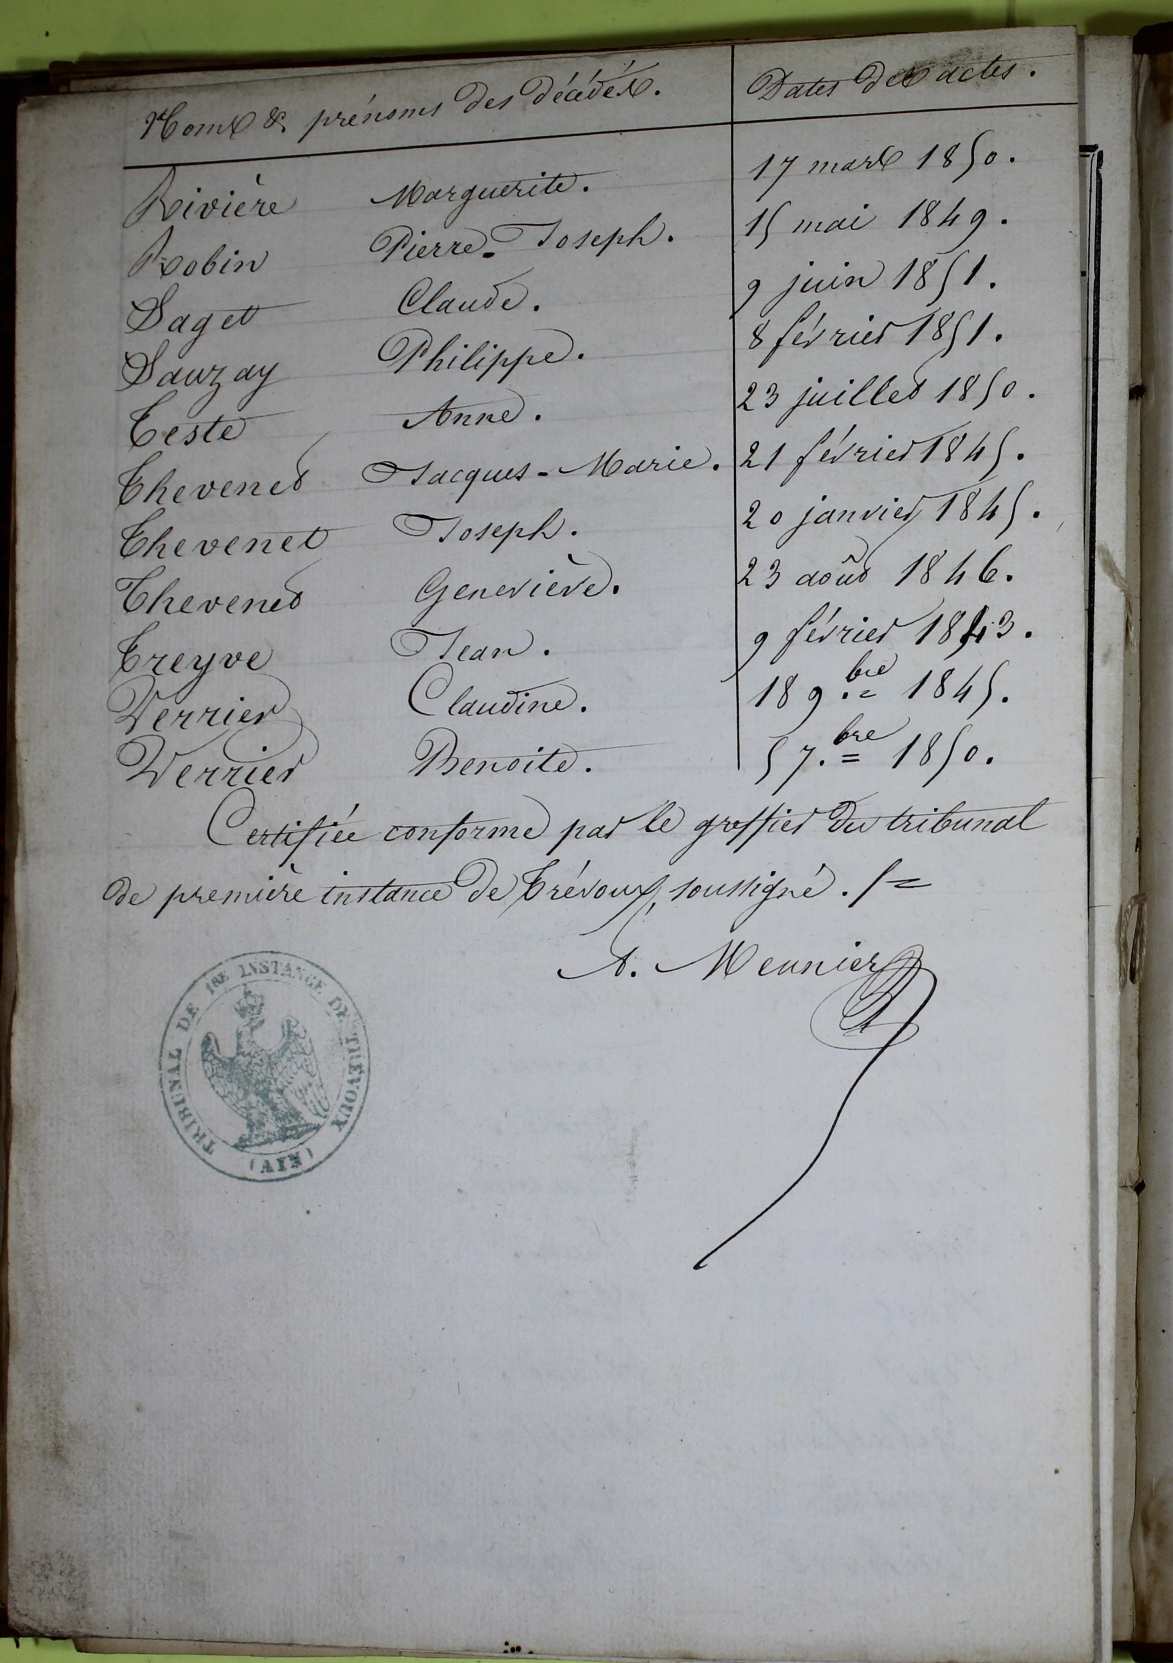 Noms & prénoms des décédés. Dates des actes.
Rivière Marguerite. 17 mars 1850.
Robin Pierre-Joseph. 15 mai 1849.
Saget Claude. 9 juin 1851.
Sauzay Philippe. 8 février 1851.
Teste Anne. 23 juillet 1850.
Thevenet Jacques-Marie. 21 février 1845.
Thevenet Joseph. 20 janvier 1845.
Thevenet Geneviève. 23 août 1846.
Treyve Jean. 9 février 1843.
Verrier Claudine. 18 9.bre 1845.
Verrier Benoite. 5 7.bre 1850.
Certifiée conforme par le greffier du tribunal
de première instance de Trévoux, soussigné. /=
A. Meunier
TRIBUNAL DE 1RE INSTANCE DE TRÉVOUX
(AIN)